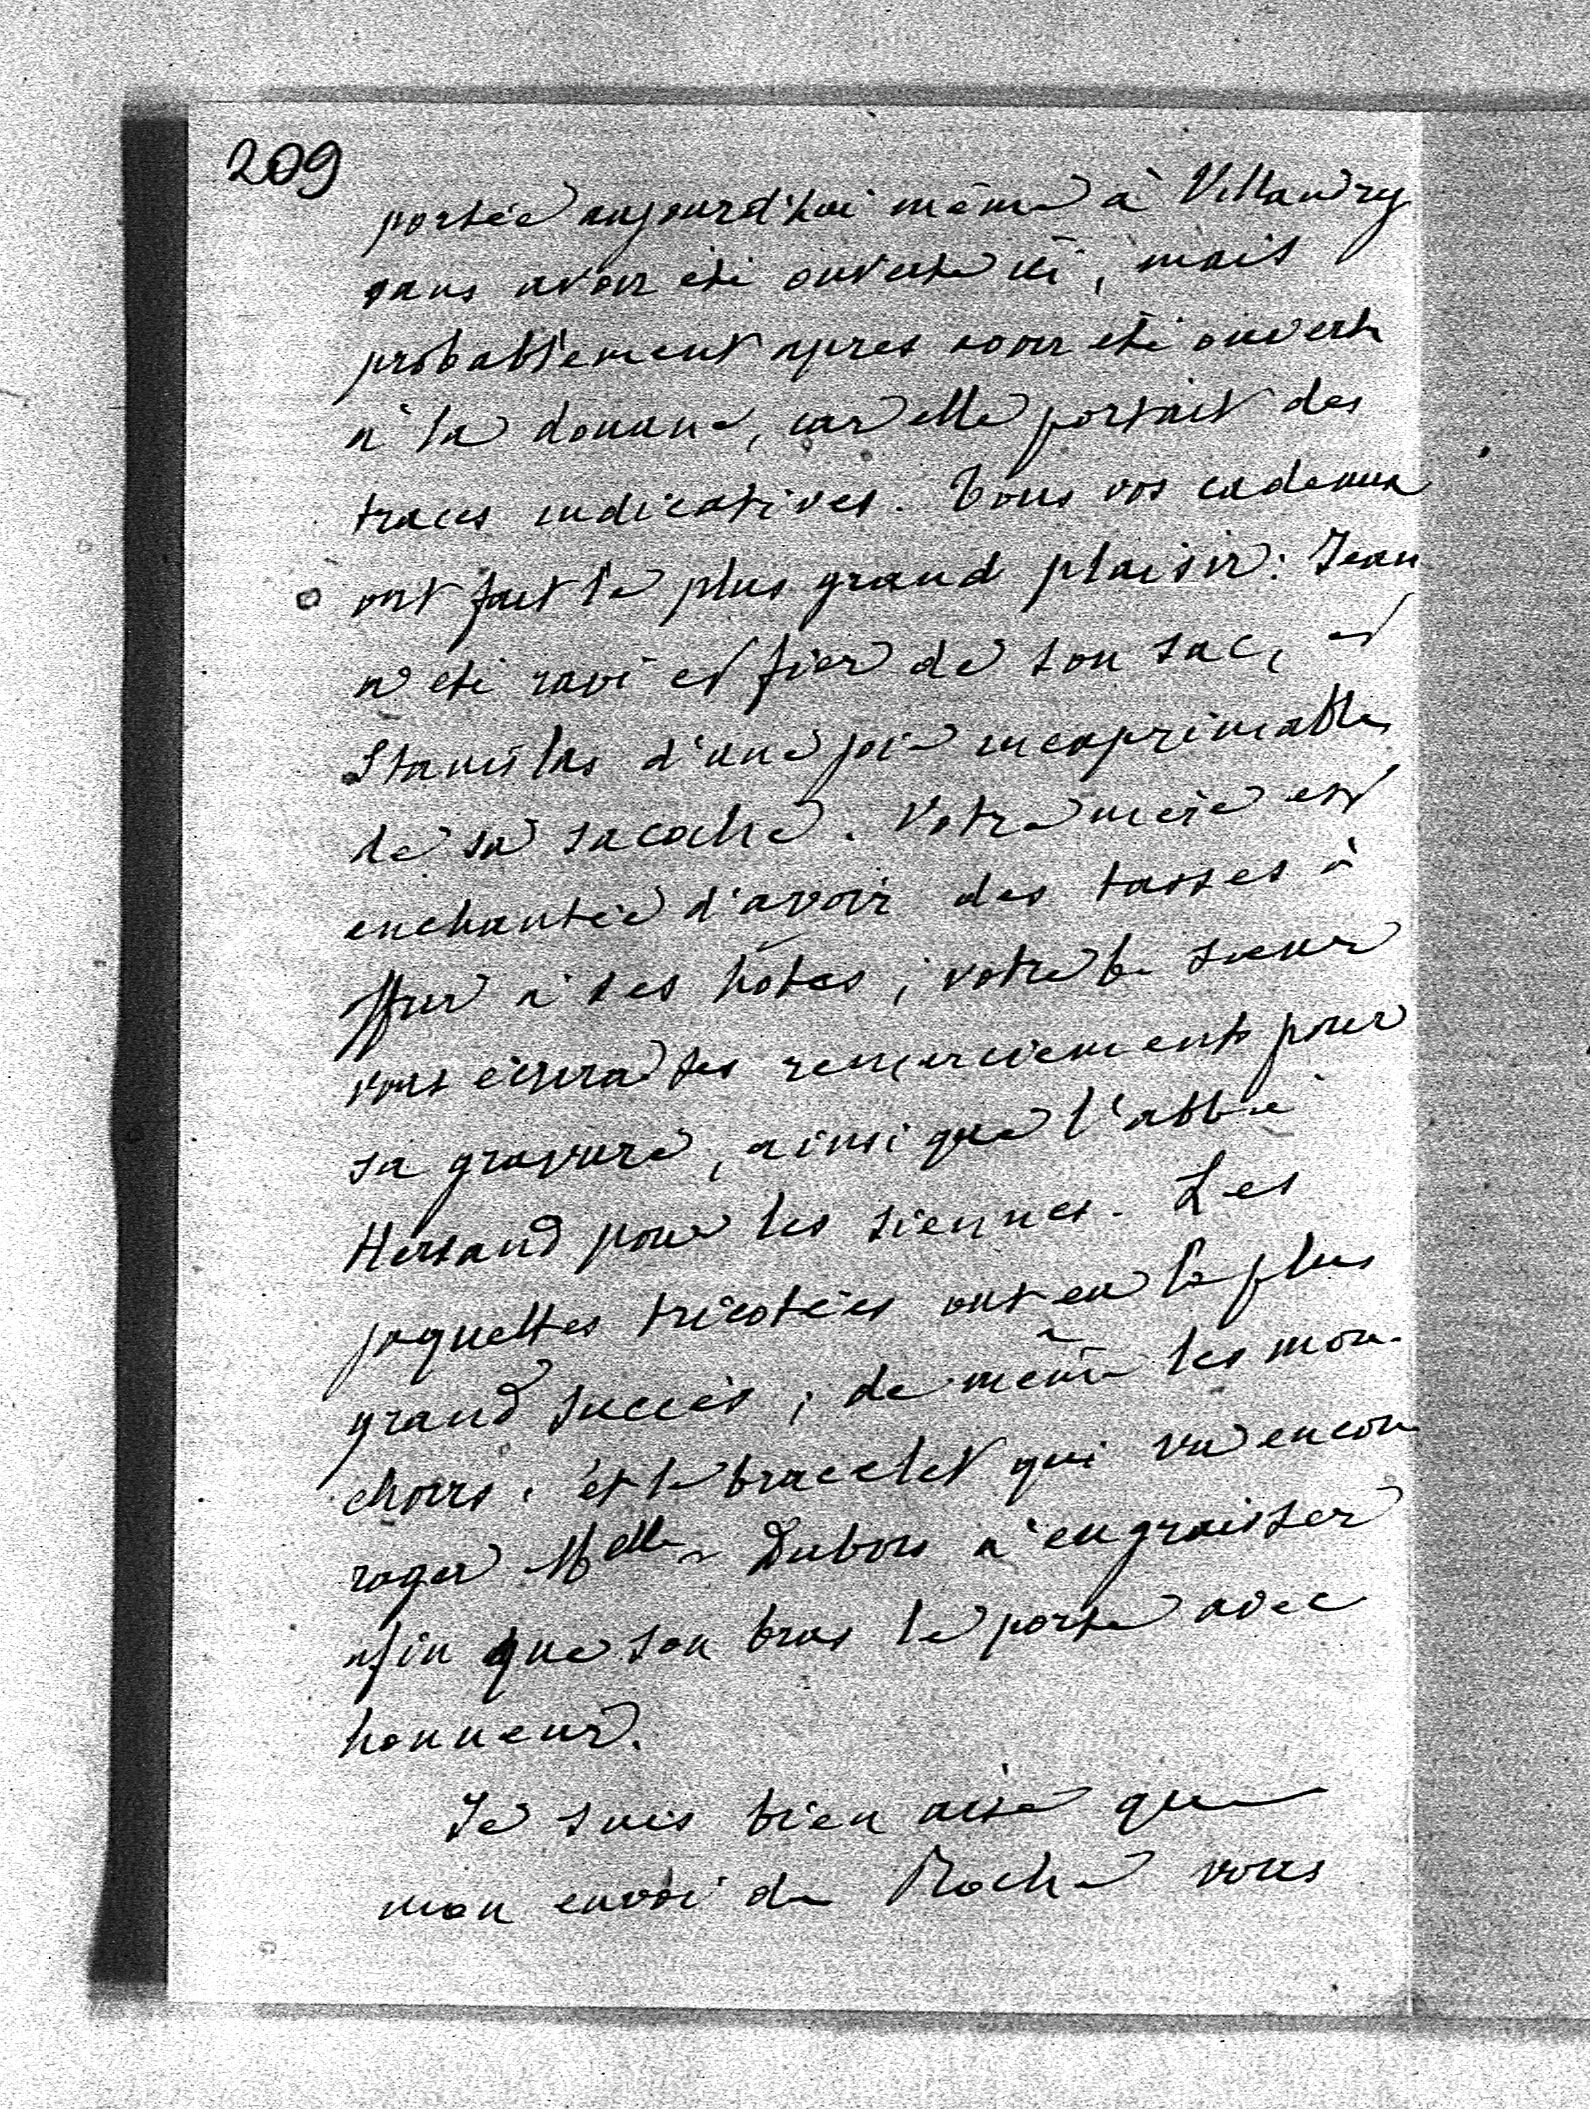 209
portée aujourd'hui même à Villandry
sans avoir été ouverte ici, mais
probablement apres avoir été ouverte
à la douane, car elle portait des
traces indicatives. Tous vos cadeaux
ont fait le plus grand plaisir: Jean
a été ravi et fier de son sac, et
Stanislas d'une joie inexprimable
de sa sacoche. Votre mère est
enchantée d'avoir des tasses à
offrir à ses hôtes; votre b. soeur
vous écrira ses remerciements pour
sa gravure, ainsi que l'abbé
Hersand pour les siennes. Les
jaquettes tricotées ont eu le plus
grand succès; de même les mou-
choirs, et le bracelet qui va encou
rager Melle Dubois à engraisser
afin que son bras le porte avec
honneur.
Je suis bien aise que
mon envoi de Roche vous